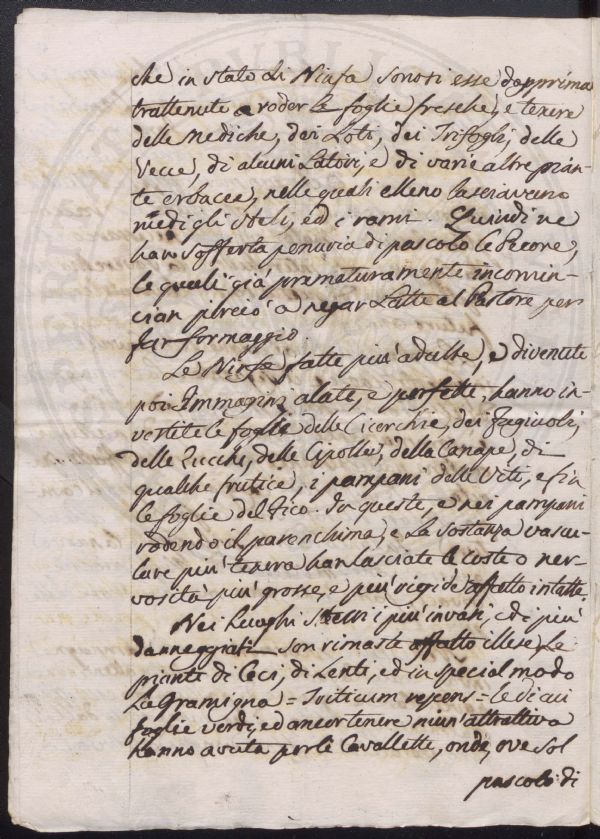 che in stato di Ninfa sonosi esse dapprima
trattenute a roder le foglie fresche, e tenere
delle Mediche, dei Loti, dei Trifogli, delle
Vecce, di alcuni Latiri, e di varie altre pian-
te erbacee, nelle quali elleno lasciavano
nudi gli steli, ed i rami. Quindi ne
han sofferta penuria di pascolo le Pecore,
le quali già prematuramente incomin-
cian perciò a negar Latte al Pastore per
far formaggio.
Le Ninfe fatte più adulte, e divenute
poi Immagini alate, e perfette, hanno in-
vestite le foglie delle Cicerchie, dei Fagiuoli,
delle Zucche, delle Cipolle, della Canape, di
qualche frutice, i pampani delle Viti, e fin
le foglie del Fico. In queste, e nei pampani
rodendo il parenchima, e la sostanza vascu-
lare più tenera han lasciate le coste o ner-
vosità più grosse, e più rigide affatto intatte.
Nei Luoghi stessi i più invasi, e di più
danneggiati son rimaste affatto illese le
piante di Ceci, di Lenti, ed in special modo
La Gramigna = Triticum repens = le di cui
foglie verdi, ed ancor tenere niun'attrattiva
hanno avuta per le Cavallette, onde, ove sol
pascolo di